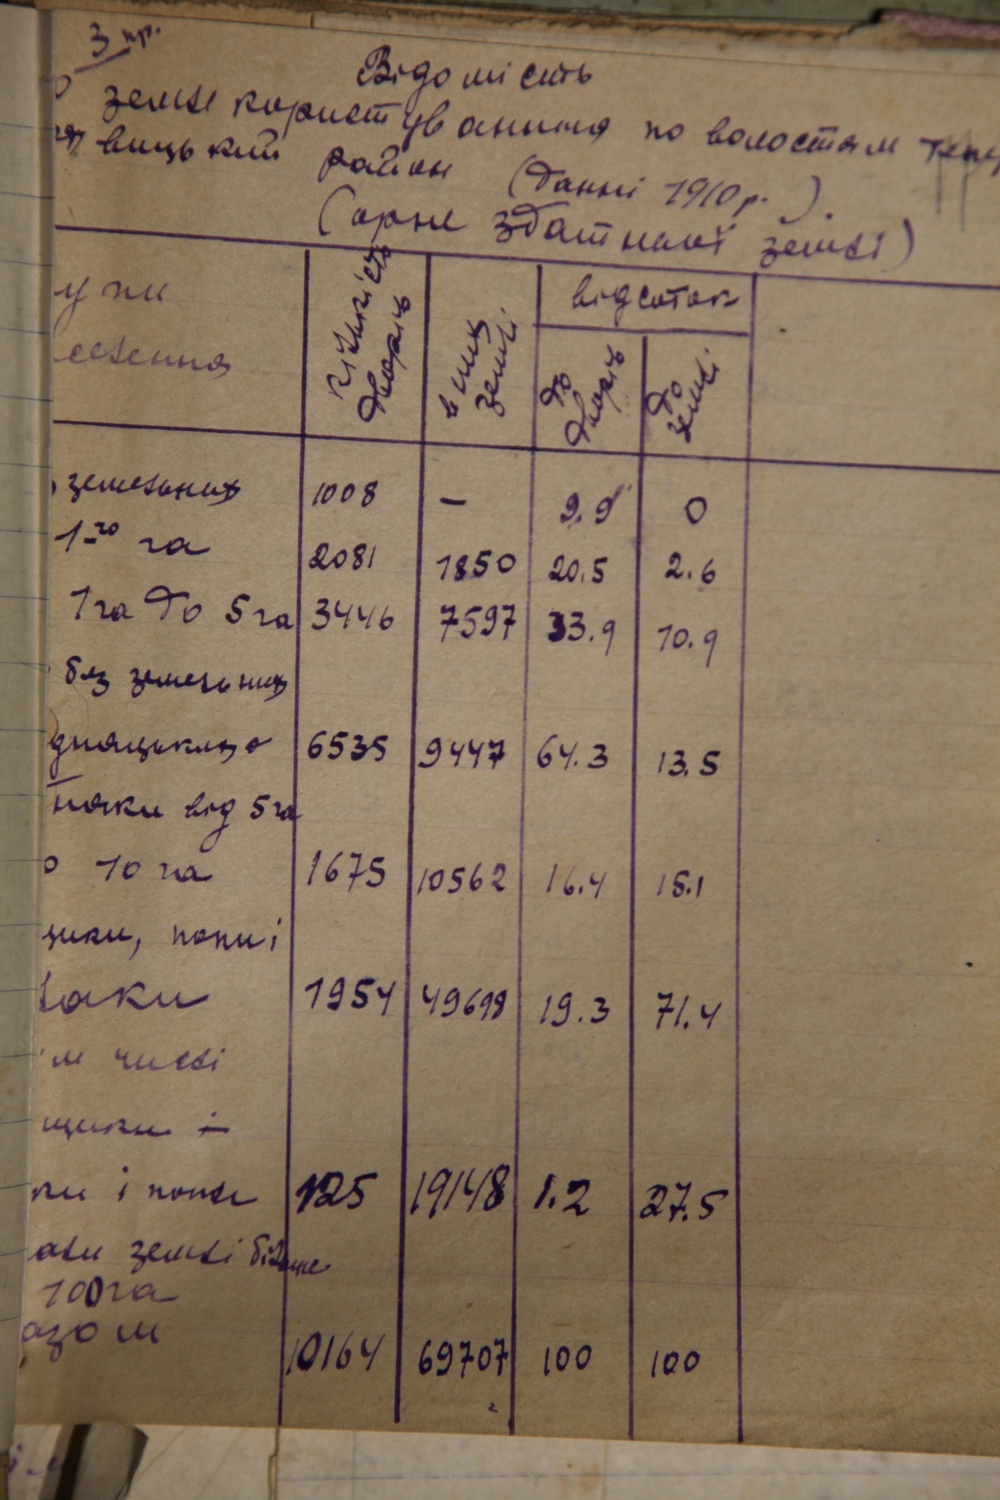 3 пр.
Відомість
землекористування по волостям
вицький район (данні 1910 р.).
(орне здатньої землі)
упи
лення
кількість дворів
в них землі
відсоток
до дворів
до землі
земельних 1008 – 9.9 0
1-го га 2081 1850 20.5 2.6
1 га до 5 га 3446 7597 33.9 10.9
без земельних
дняцьких 6535 9447 64.3 13.5
няки від 5 га
о 10 га 1675 10562 16.4 15.1
щики, попи і
лаки 1954 49698 19.3 71.4
м числі
щики –
ки і попи 125 19148 1.2 27.5
али землі більше
100 га
азом 10164 69707 100 100